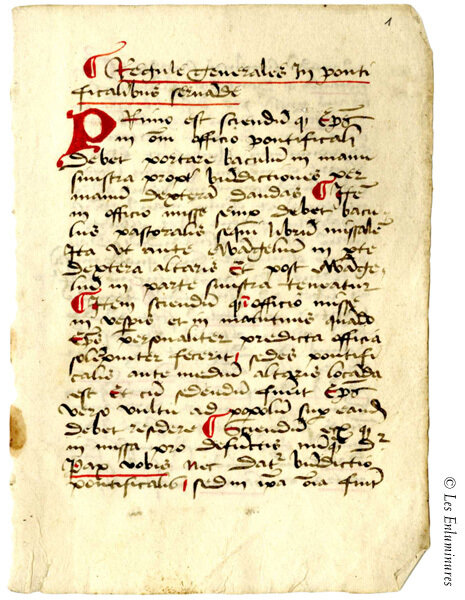 1
Regule Generales In ponti
ficalibus seruande
PRimo est sciendū q Ep̄s
in om̄i officio pontificali
debet portare baculum in manu
sinistra propt' bn̄dictiones per
manū dexterā dandas Itē
in officio misse semp debet bacu
lus pastoralis sequi librum missalē
Ita vt ante Ewangelium in pte
dextera altaris Et post Ewange
lium in parte sinistra teneatur
Item sciendum q in officio misse
in vesperis et in matutinis quādo
Ep̄s personaliter predicta officia
solēpniter fecerit sedes pontifi
calis ante medium altaris locanda
est Et cū sedendum fuerit Ep̄s
verso vultu ad populum sup eandē
debet residere Sciendum est q
in missa pro defunctis nunq̄ dr̄
Pax vobis nec dat' bn̄dictio
pontificalis sed in ipa om̄ia fiunt
© Les Enluminures